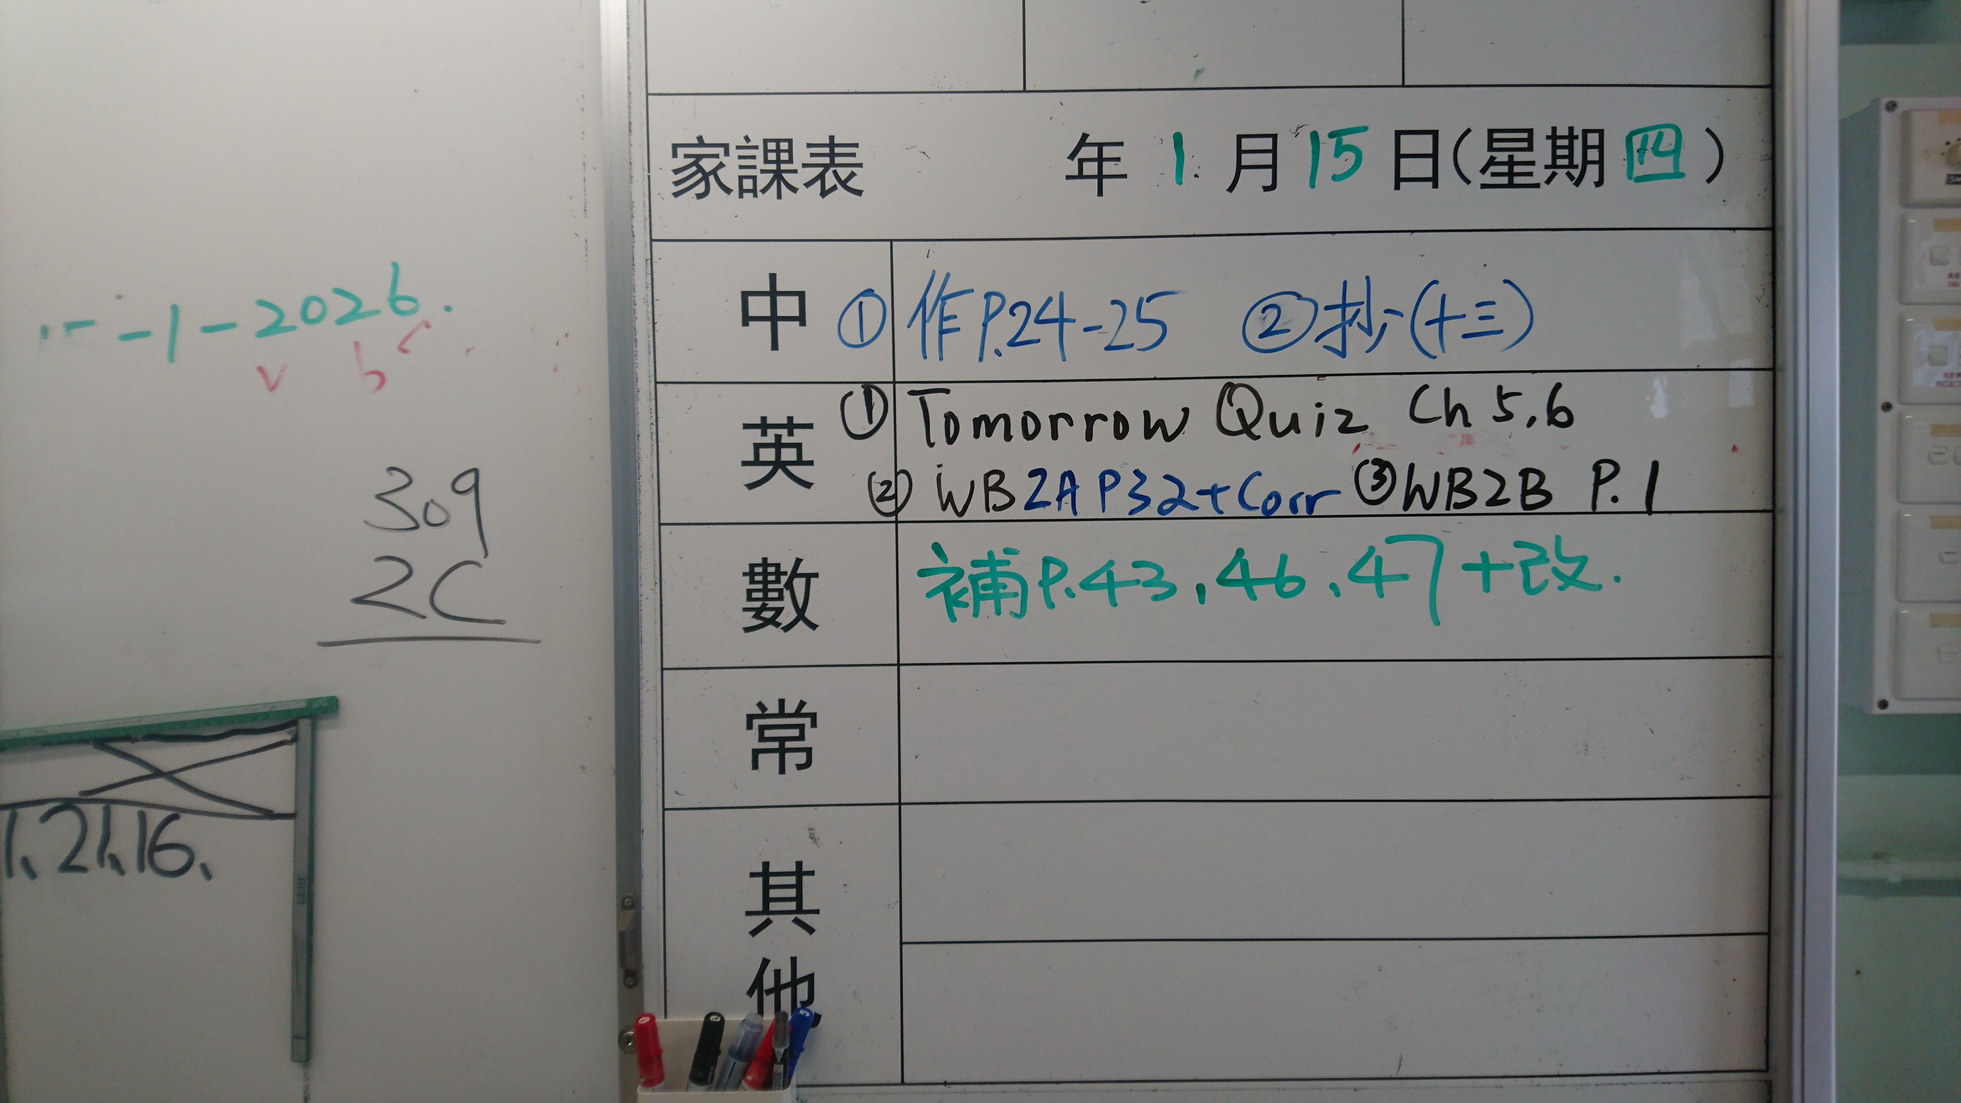 -1-2026.
v b c
309
2C
1、21、16、
家課表 年 1 月 15 日(星期 四)
中 ① 作P.24-25 ② 抄(十三)
英 ① Tomorrow Quiz Ch 5,6
② WB2A P32+Corr ③ WB2B P.1
數 補P.43,46,47+改.
常
其他